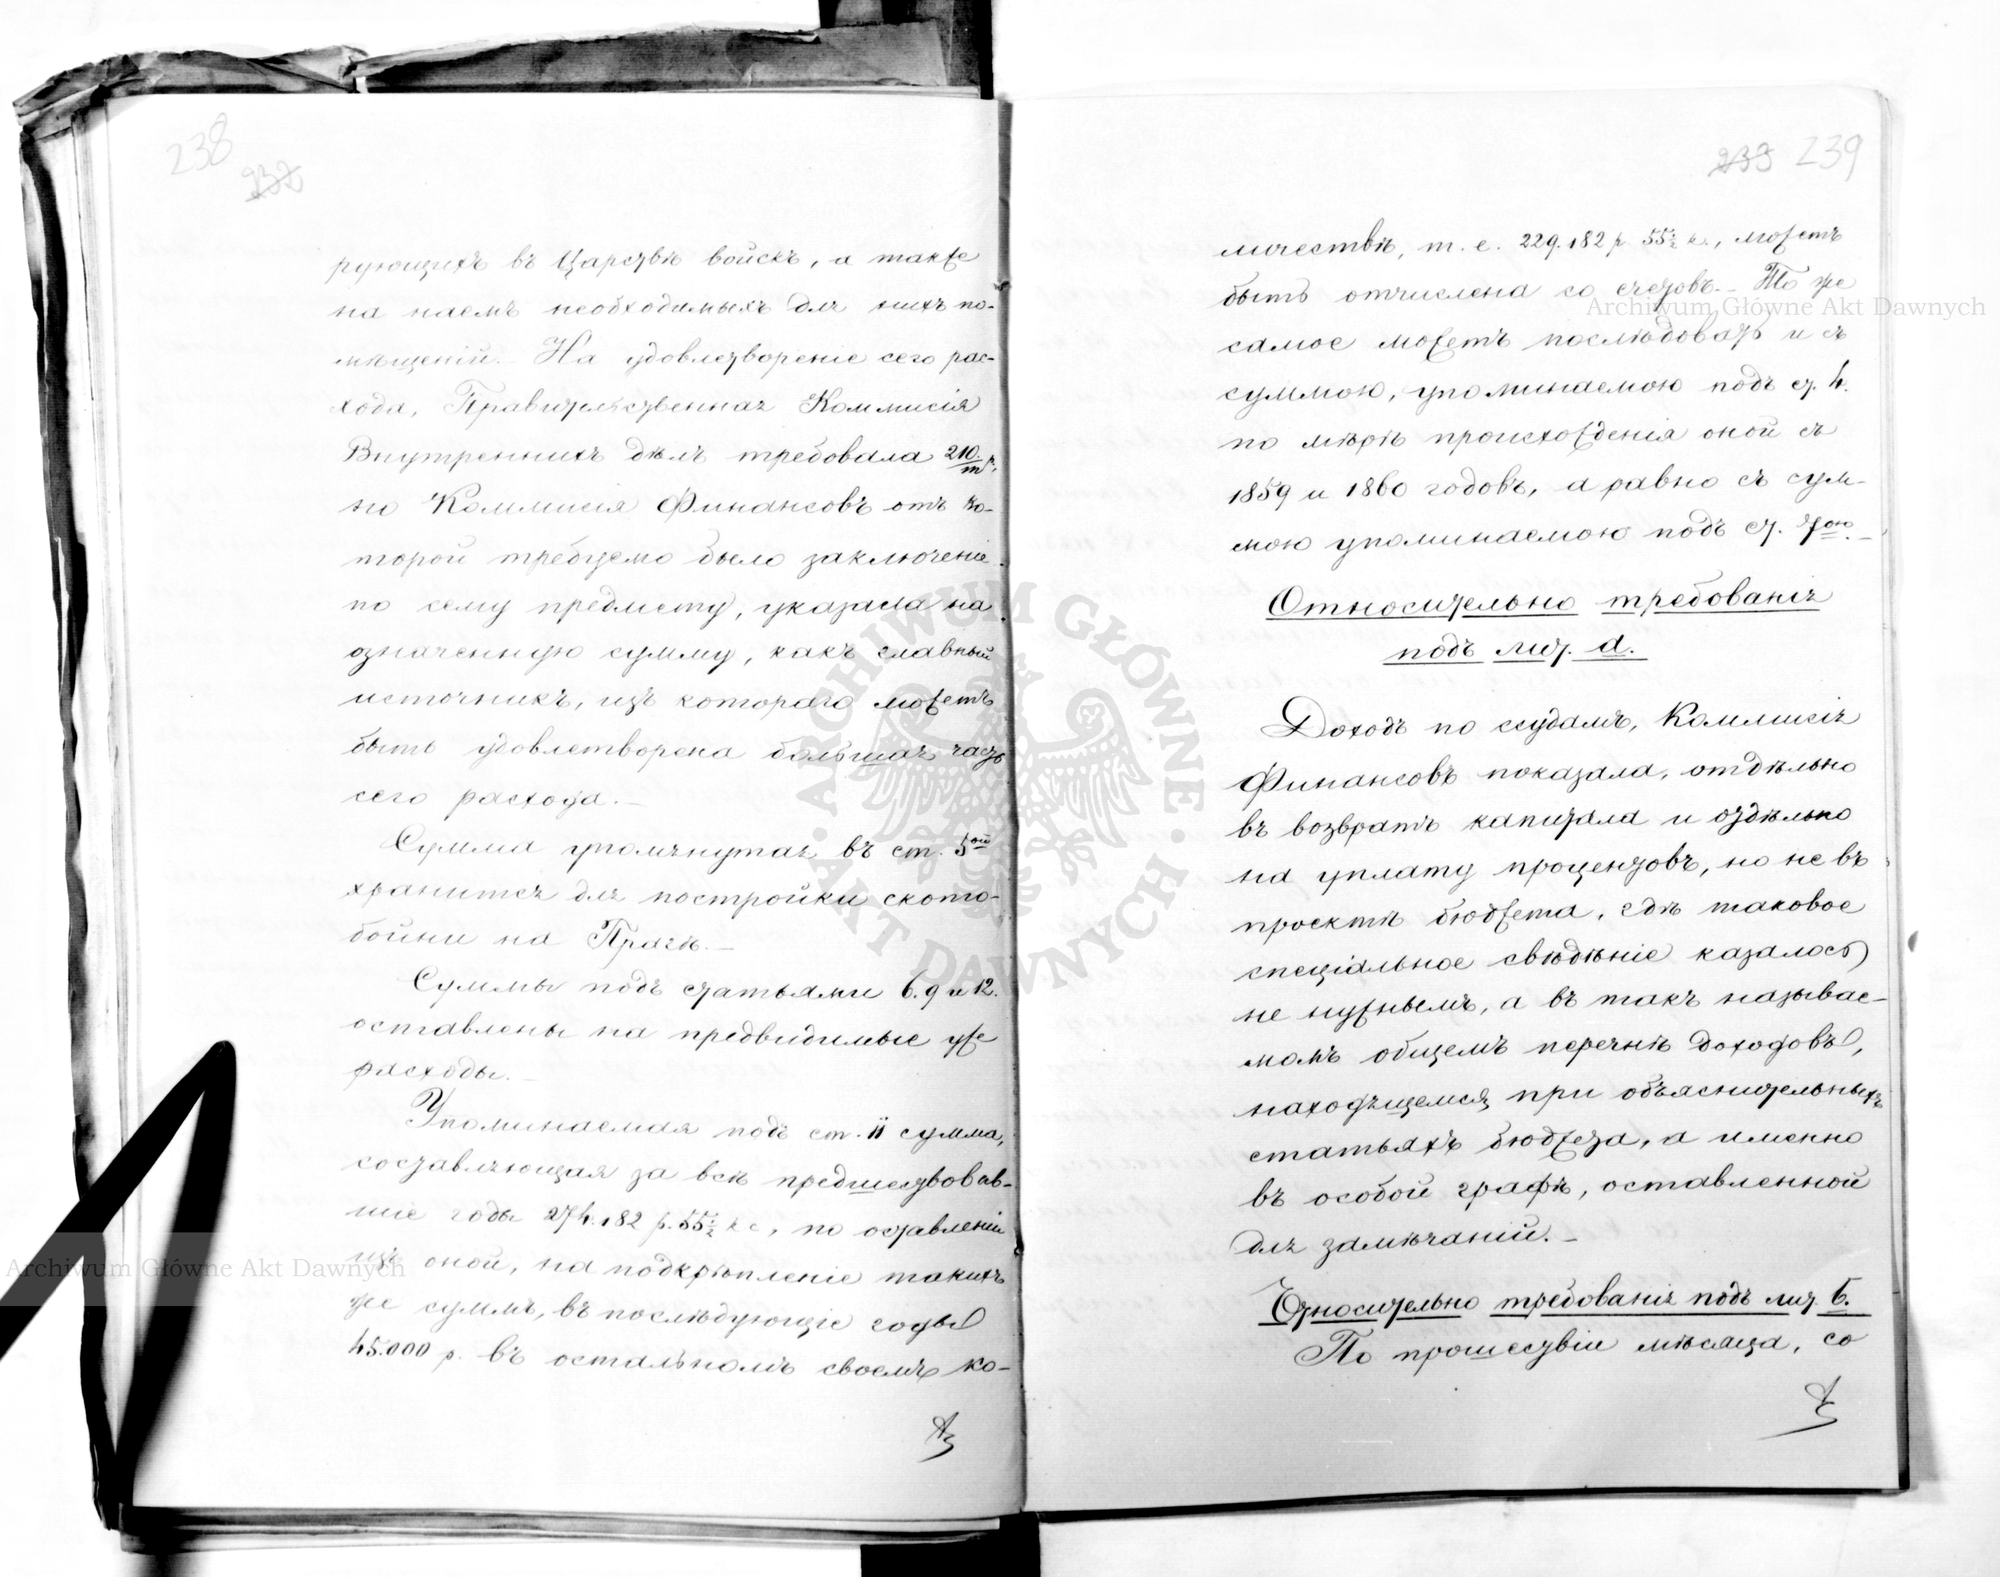 238
232
рующихъ въ Царствѣ войскъ, а также
на наемъ необходимыхъ для нихъ по-
мѣщеній. На удовлетвореніе сего рас-
хода, Правительственная Коммисія
Внутреннихъ дѣлъ требовала 210/т р.
но Коммисія Финансовъ отъ ко-
торой требуемо было заключеніе
по сему предмету, указала на
означенную сумму, какъ главный
источникъ, изъ котораго можетъ
быть удовлетворена большая часть
сего расхода.—
Сумма упомянутая въ ст. 5ой
хранится для постройки ското-
бойни на Прагѣ.—
Суммы подъ статьями 6. 9 и 12.
оставлены на предвидимые уже
расходы.—
Упоминаемая подъ ст. 11 сумма,
составляющая за всѣ предшествовав-
шіе годы 274.182 р. 55½ кс, по оставленіи
изъ оной, на подкрѣпленіе такихъ
же суммъ, въ послѣдующіе годы
45.000 р. въ остальномъ своемъ ко-
239 239
личествѣ, т. е. 229.182 р. 55½ к., можетъ
быть отчислена со счетовъ.— То же
самое можетъ послѣдовать и съ
суммою, упоминаемою подъ ст. 4.
по мѣрѣ происхожденія оной съ
1859 и 1860 годовъ, а равно съ сум-
мою упоминаемою подъ ст. 7ою.—
Относительно требованія
подъ лит. а.
Доходъ по ссудамъ, Коммисія
Финансовъ показала, отдѣльно
въ возвратъ капитала и отдѣльно
на уплату процентовъ, но не въ
проектѣ бюджета, гдѣ таковое
спеціальное свѣдѣніе казалось
не нужнымъ, а въ такъ называе-
момъ общемъ перечнѣ доходовъ,
находящемся при объяснительныхъ
статьяхъ бюджета, а именно
въ особой графѣ, оставленной
для замѣчаній.—
Относительно требованія подъ лит. б.
По прошествіи мѣсяца, со
Archiwum Główne Akt Dawnych
Archiwum Główne Akt Dawnych
ARCHIWUM GŁÓWNE · AKT DAWNYCH ·